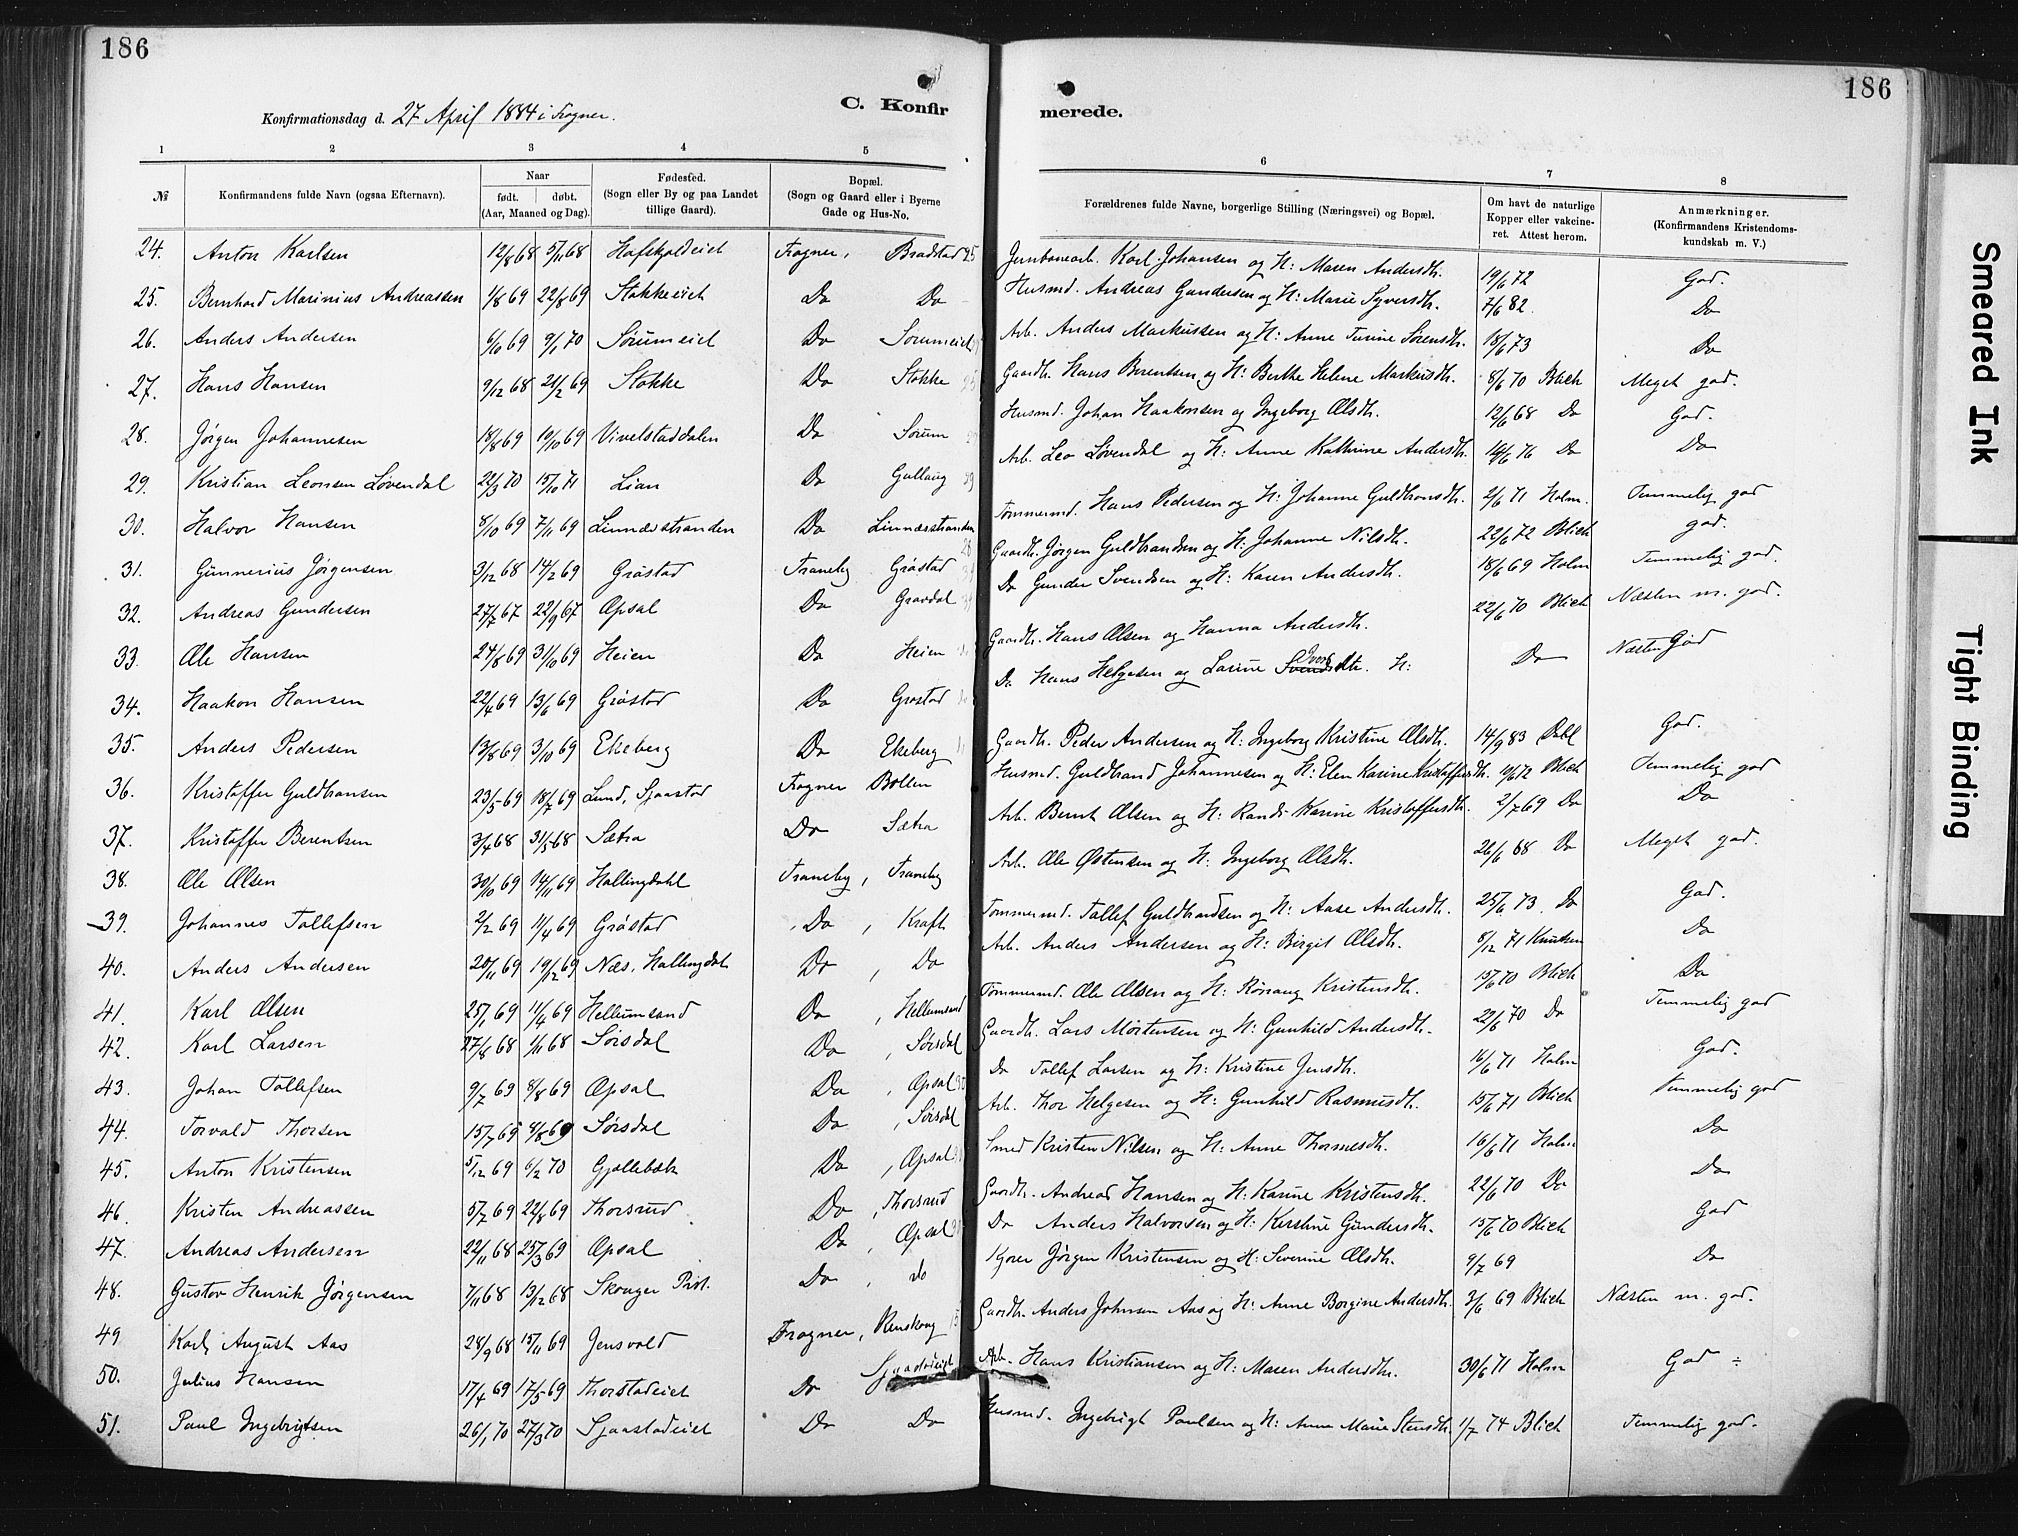 186
186
Konfirmationsdag d. 27 April 1884 i Frogner.
C. Konfir
merede.
1 2 3 4 5 6 7 8
№ Konfirmandens fulde Navn (ogsaa Efternavn). Naar født. døbt. (Aar, Maaned og Dag). Fødested. (Sogn eller By og paa Landet tillige Gaard). Bopæl. (Sogn og Gaard eller i Byerne Gade og Hus-No. Forældrenes fulde Navne, borgerlige Stilling (Næringsvei) og Bopæl. Om havt de naturlige Kopper eller vakcineret. Attest herom. Anmærkninger. (Konfirmandens Kristendomskundskab m. V.)
24. Anton Karlsen 12/8 68 5/11 68 Hafskjoldeiet Frogner, Bradstad Jernbanearb. Karl Johansen og H: Maren Andersdh. 19/6 72 God.
25. Bernhard Marinius Andreassen 1/8 69 22/8 69 Stokkeeiet Do Do Husmd. Andreas Gundersen og H: Marie Syversdh. 7/6 82. Do
26. Anders Andersen 6/10 69 9/1 70 Sørumeiet Do Sørumeiet Arb. Anders Markussen og H: Anne Turine Sørensdh. 18/6 73 Do
27. Hans Hansen 9/12 68 21/2 69 Stokke Do Stokke Gaardb. Hans Berentsen og H: Berthe Helene Markusdh. 8/6 70 Blich Meget god.
28. Jørgen Johannesen 18/8 69 19/10 69 Vivelstaddalen Do Sørum Husmd. Johan Haakonsen og Ingeborg Olsdh. 12/6 68 Do God.
29. Kristian Leonsen Løvendal 22/3 70 15/10 71 Lian Do Gullaug Arb. Leo Løvendal og H: Anne Kathrine Andersdh. 14/6 76 Do Do
30. Halvor Hansen 8/10 69 7/11 69 Linnæsstranden Do Linnæsstranden Tømmermd. Hans Pedersen og H: Johanne Guldbrandsdh. 2/6 71 Holm. Temmelig god
31. Gunnerius Jørgensen 3/12 68 14/2 69 Grøstad Traneby Grøstad Gaardb. Jørgen Guldbrandsen og H: Johanne Nilsdh. 22/6 72 Blich god.
32. Andreas Gundersen 27/7 67 22/9 67 Opsal Do Gravdal Do Gunder Svendsen og H: Karen Andersdh. 18/6 69 Holm Temmelig god.
33. Ole Hansen 24/8 69 31/10 69 Heien Do Heien Gaardb. Hans Olsen og Hanna Andersdh. 22/6 70 Blich Næsten m. god.
34. Haakon Hansen 22/4 69 13/6 69 Grøstad Do Grøstad Do Hans Helgesen og Larine H: Do Næsten God
35. Anders Pedersen 13/8 69 3/10 69 Ekeberg Do Ekeberg Gaardb. Peder Andersen og H: Ingeborg Kristine Olsdh. 14/9 83 Dahl God.
36. Kristoffer Guldbransen 23/5 69 18/7 69 Lund, Sjaastad Frogner Bollen Husmd. Guldbrand Johannesen og H: Elen Karine Kristoffersdh. 11/6 72 Blich Temmelig god
37. Kristoffer Berentsen 3/4 68 31/5 68 Sætra Do Sætra Arb. Bernt Olsen og H: Randi Karine Kristoffersdh. 2/7 69 Do Do
38. Ole Olsen 30/10 69 14/11 69 Hallingdahl Traneby, Traneby Arb. Ole Østensen og H: Ingeborg Olsdh. 26/6 68 Do Meget god.
39. Johannes Tollefsen 2/2 69 11/4 69 Grøstad Do, Kraft Tømmermd. Tollef Guldbrandsen og H: Aase Andersdh. 25/6 73. Do God.
40. Anders Andersen 20/11 69 19/12 69 Næs, Hallingdal Do, Do Arb. Anders Andersen og H: Birgit Olsdh. 8/12 71 Knutsen Do
41. Karl Olsen 25/1 69 11/4 69 Hellumsand Do, Hellumsand Tømmermd. Ole Olsen og H: Rønnaug Kristensdh. 15/6 70 Blich Do
42. Karl Larsen 27/8 68 1/11 68 Sørsdal Do, Sørsdal Gaardb. Lars Mortensen og H: Gunhild Andersdh. 22/6 70 Do Temmelig god
43. Johan Tollefsen 9/7 69 8/8 69 Opsal Do, Opsal Do Tollef Larsen og H: Kristine Jensdh. 16/6 71 Holm God.
44. Torvald Thorsen 15/7 69 8/8 69 Sørsdal Do, Sørsdal Arb. Thor Helgesen og H: Gunhild Rasmusdh. 15/6 71 Blich Temmelig god
45. Anton Kristensen 5/12 69 6/2 70 Gjellebæk Do, Opsal Smed Kristen Nilsen og H: Anne Thomesdh. 16/6 71 Holm Do
46. Kristen Andreassen 5/7 69 22/8 69 Thorsrud Do, Thorsrud Gaardb. Andreas Hansen og H: Karine Kristensdh. 22/6 70 Do Do
47. Andreas Andersen 22/11 68 25/3 69 Opsal Do, Opsal Do Anders Halvorsen og H: Kerstine Gundersdh. 15/6 70 Blich God
48. Gustav Henrik Jørgensen 7/11 68 13/12 68 Skouger Prst. Do, do Kjører Jørgen Kristensen og H: Severine Olsdh. 9/7 69 Do
49. Karl August Aas 28/9 68 15/11 69 Jensvold Frogner, Renskoug Gaardb. Anders Johnsen Aas og H: Anne Borgine Andersdh. 3/6 69 Blich Næsten m. god.
50. Julius Hansen 17/4 69 17/5 69 Thorstadeiet Do Sjaastadeiet Arb. Hans Kristiansen og H: Maren Andersdh. 30/6 71 Holm God ÷
51. Paul Ingebrigtsen 26/1 70 27/3 70 Sjaastadeiet Do Do Husmd. Ingebrigt Paulsen og H: Anne Marie Stensdh. 1/7 74 Blich Temmelig god.
Smeared Ink
Tight Binding